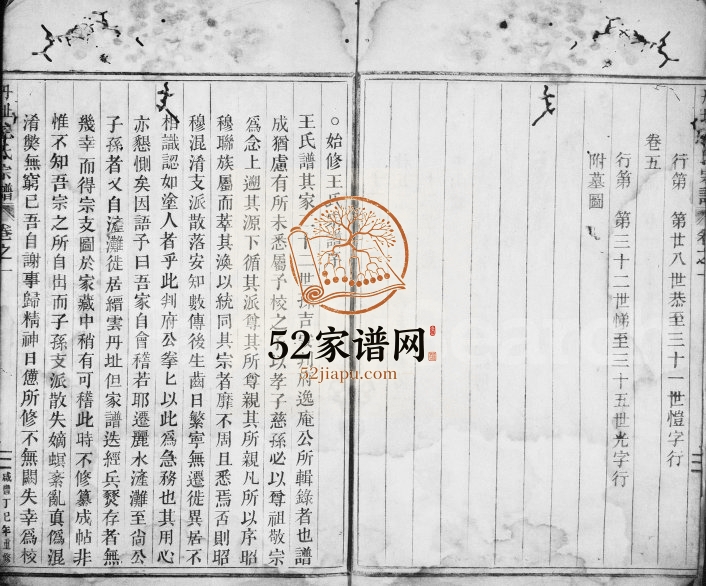 行第 廿八世恭至三十一世愷字行
卷五
行第 第三十二世悌至三十五世光字行
附墓圖
○始修王氏
王氏譜其家 十二世 吉 府逸庵公所輯錄者也譜
成猶慮有所未悉屬予校之 以孝子慈孫必以尊祖敬宗
為念上遡其源下循其派尊其所尊親其所親凡所以序昭
穆聯族屬而萃其渙以統同其宗者靡不周且悉焉否則昭
穆混淆支派散落安知數傳後生齒日繁寧無遷徙異居不
相識認如塗人者乎此判府公拳上以此為急務也其用心
亦懇惻矣因語予曰吾家自會稽若耶遷麗水滻灘至尚公
子孫者又自滻灘徙居縉雲丹址但家譜迭經兵燹存者無
幾幸而得宗支圖於家藏中稍有可稽此時不修纂成帖非
惟不知吾宗之所自出而子孫支派散失嫡螟紊亂真偽混
淆獘無窮已吾自謝事歸精神日憊所修不無闕失幸為校
丹址 氏宗譜 卷之一
咸豐丁巳年重修
52家谱网
52jiapu.com